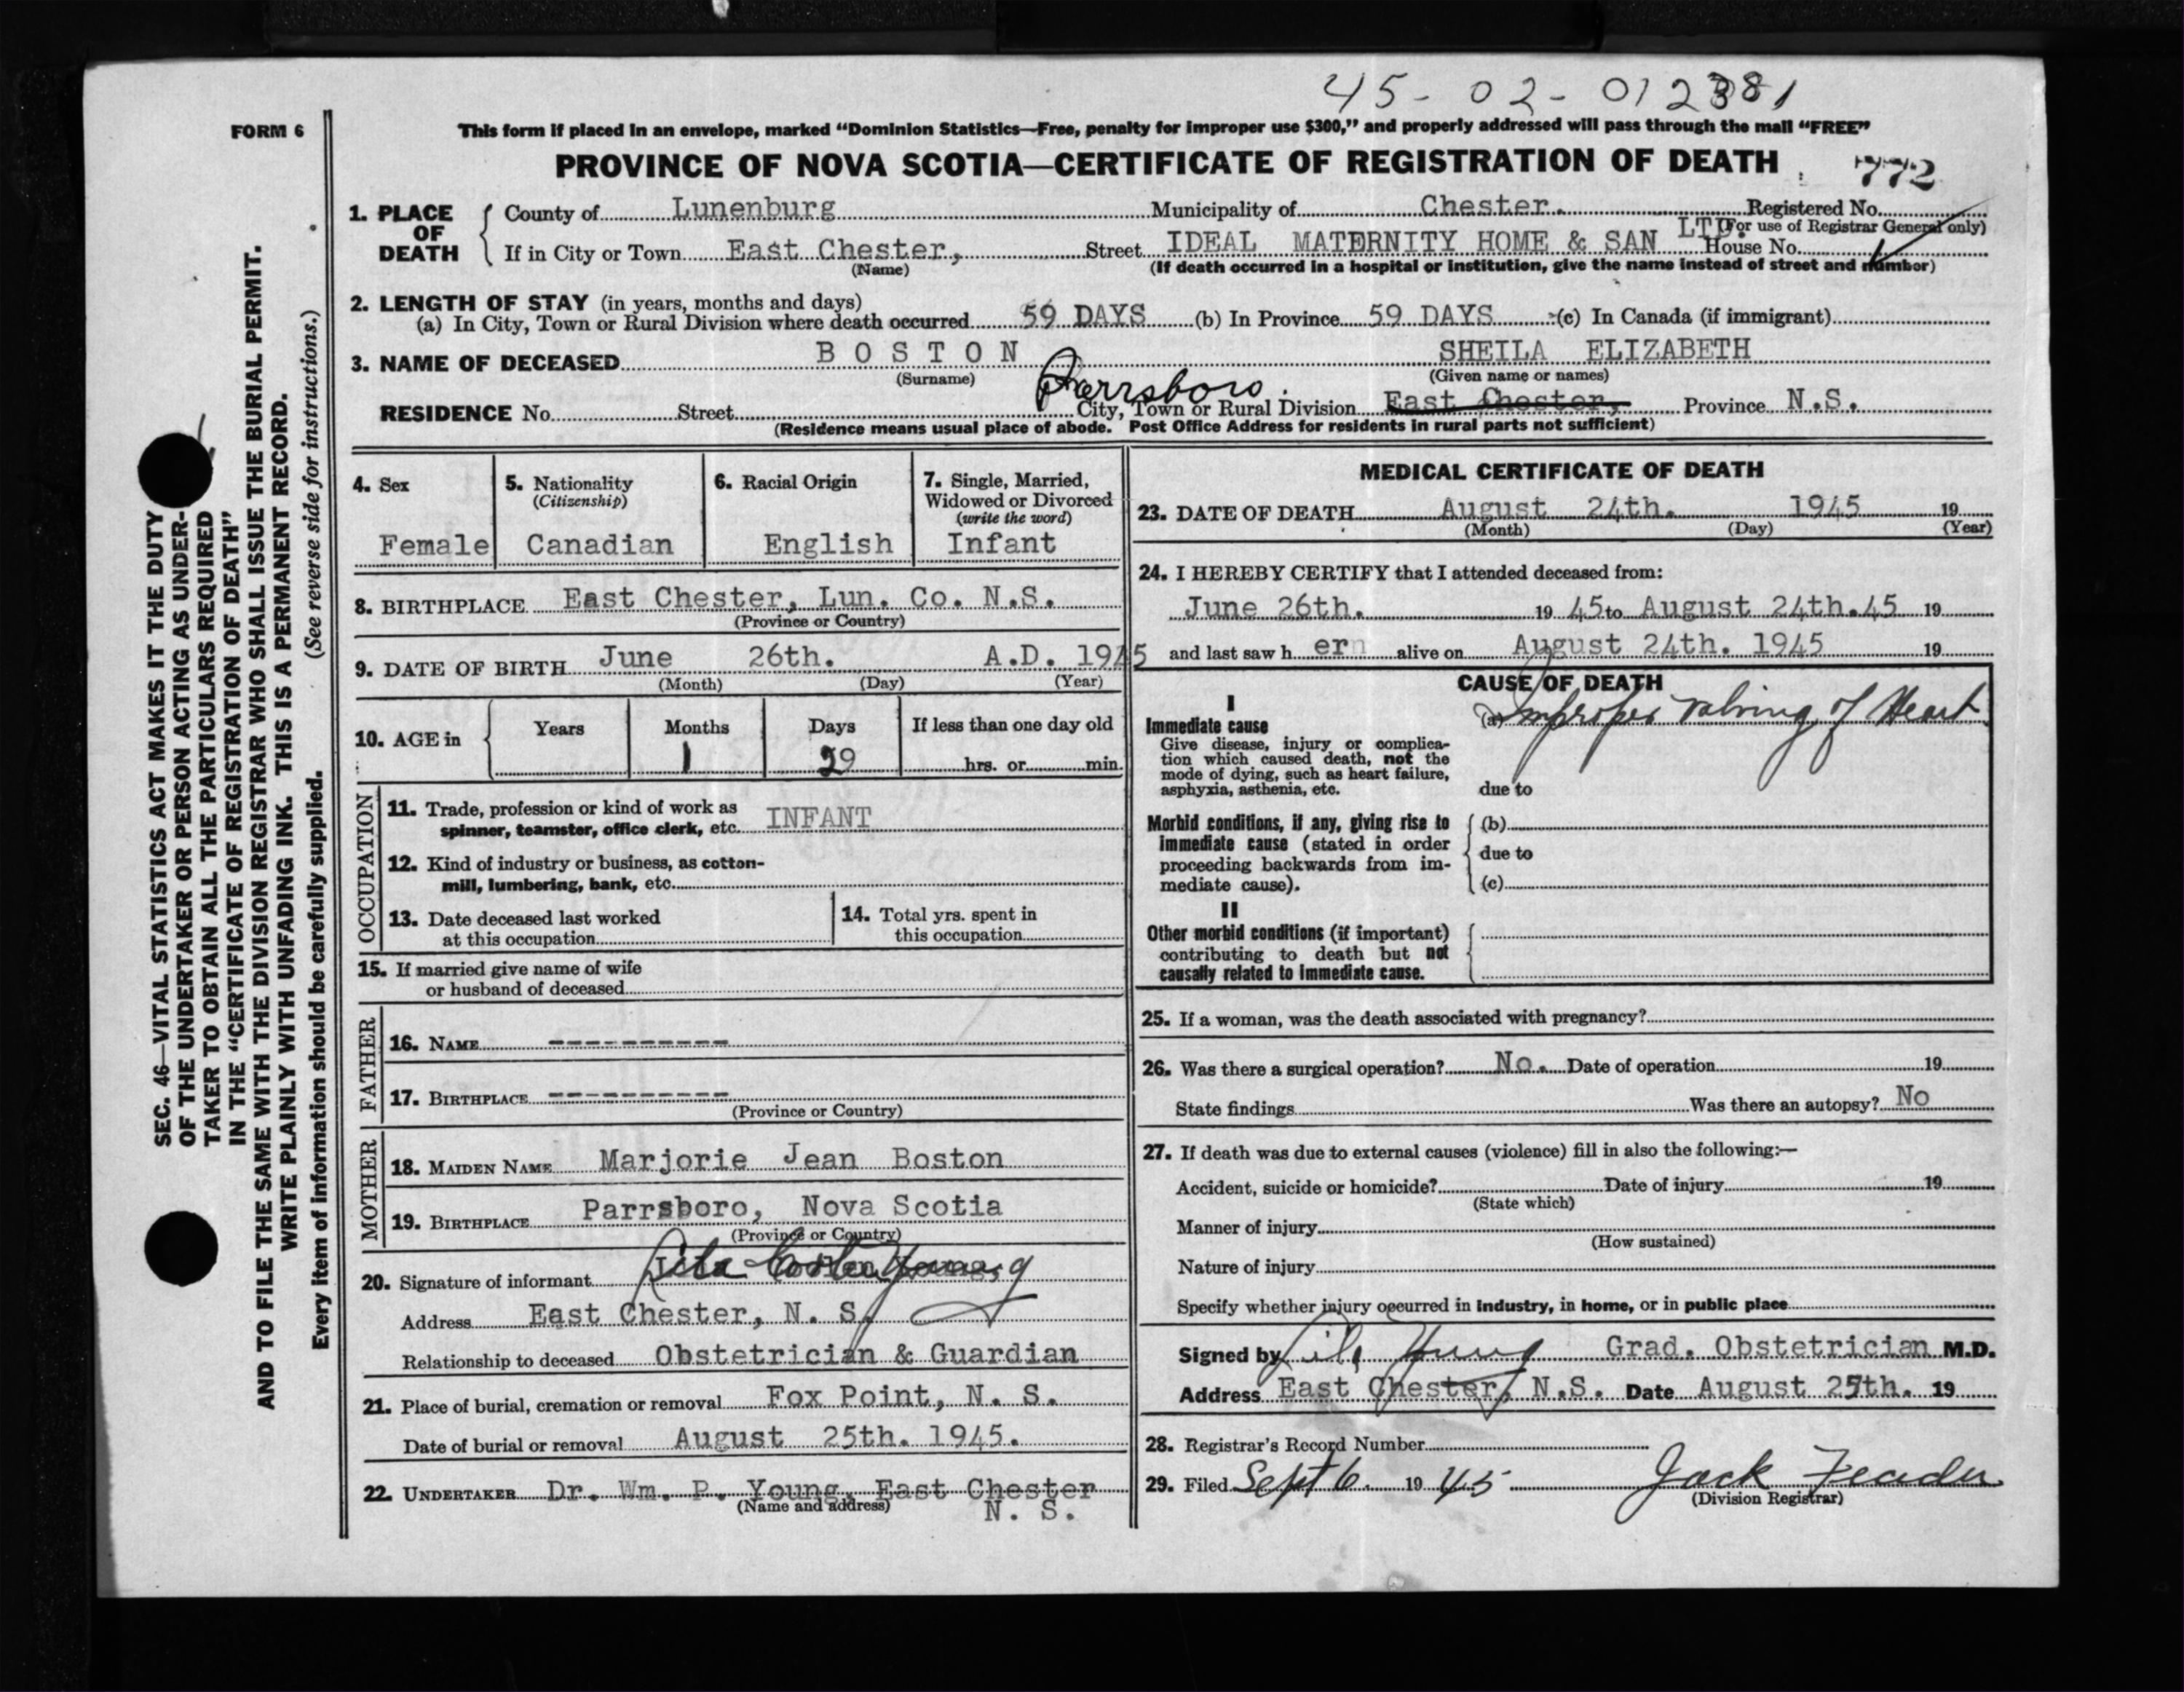 45-02-012381
FORM 6
This form if placed in an envelope, marked "Dominion Statistics—Free, penalty for improper use $300," and properly addressed will pass through the mail "FREE"
PROVINCE OF NOVA SCOTIA—CERTIFICATE OF REGISTRATION OF DEATH
772
1. PLACE OF DEATH
County of Lunenburg Municipality of Chester. Registered No.
(For use of Registrar General only)
If in City or Town East Chester, Street IDEAL MATERNITY HOME & SAN LTD. House No.
(Name) (If death occurred in a hospital or institution, give the name instead of street and number)
2. LENGTH OF STAY (in years, months and days)
(a) In City, Town or Rural Division where death occurred 59 DAYS (b) In Province 59 DAYS (c) In Canada (if immigrant)
3. NAME OF DECEASED BOSTON SHEILA ELIZABETH
(Surname) (Given name or names)
Parrsboro.
RESIDENCE No. Street City, Town or Rural Division East Chester, Province N.S.
(Residence means usual place of abode. Post Office Address for residents in rural parts not sufficient)
4. Sex
Female
5. Nationality
(Citizenship)
Canadian
6. Racial Origin
English
7. Single, Married,
Widowed or Divorced
(write the word)
Infant
8. BIRTHPLACE East Chester, Lun. Co. N.S.
(Province or Country)
9. DATE OF BIRTH June 26th. A.D. 1945
(Month) (Day) (Year)
10. AGE in Years Months Days If less than one day old
1 29 hrs. or min.
OCCUPATION
11. Trade, profession or kind of work as
spinner, teamster, office clerk, etc. INFANT
12. Kind of industry or business, as cotton-
mill, lumbering, bank, etc.
13. Date deceased last worked
at this occupation
14. Total yrs. spent in
this occupation
15. If married give name of wife
or husband of deceased
FATHER
16. NAME ----------
17. BIRTHPLACE ----------
(Province or Country)
MOTHER
18. MAIDEN NAME Marjorie Jean Boston
19. BIRTHPLACE Parrsboro, Nova Scotia
(Province or Country)
20. Signature of informant Lila Coolen Young
Address East Chester, N. S.
Relationship to deceased Obstetrician & Guardian
21. Place of burial, cremation or removal Fox Point, N. S.
Date of burial or removal August 25th. 1945.
22. UNDERTAKER Dr. Wm. P. Young, East Chester
(Name and address) N. S.
MEDICAL CERTIFICATE OF DEATH
23. DATE OF DEATH August 24th. 1945 19
(Month) (Day) (Year)
24. I HEREBY CERTIFY that I attended deceased from:
June 26th. 19 45 to August 24th. 45 19
and last saw h er alive on August 24th. 1945 19
CAUSE OF DEATH
I
Immediate cause
Give disease, injury or complica-
tion which caused death, not the
mode of dying, such as heart failure,
asphyxia, asthenia, etc.
(a) Improper Valving of Heart
due to
Morbid conditions, if any, giving rise to
immediate cause (stated in order
proceeding backwards from im-
mediate cause).
(b)
due to
(c)
II
Other morbid conditions (if important)
contributing to death but not
causally related to immediate cause.
25. If a woman, was the death associated with pregnancy?
26. Was there a surgical operation? No. Date of operation 19
State findings Was there an autopsy? No
27. If death was due to external causes (violence) fill in also the following:—
Accident, suicide or homicide? Date of injury 19
(State which)
Manner of injury
(How sustained)
Nature of injury
Specify whether injury occurred in industry, in home, or in public place
Signed by Lila Young Grad. Obstetrician M.D.
Address East Chester, N.S. Date August 25th. 19
28. Registrar's Record Number
29. Filed Sept 6. 19 45 Jack
(Division Registrar)
SEC. 46—VITAL STATISTICS ACT MAKES IT THE DUTY
OF THE UNDERTAKER OR PERSON ACTING AS UNDER-
TAKER TO OBTAIN ALL THE PARTICULARS REQUIRED
IN THE "CERTIFICATE OF REGISTRATION OF DEATH"
AND TO FILE THE SAME WITH THE DIVISION REGISTRAR WHO SHALL ISSUE THE BURIAL PERMIT.
WRITE PLAINLY WITH UNFADING INK. THIS IS A PERMANENT RECORD.
Every item of information should be carefully supplied. (See reverse side for instructions.)